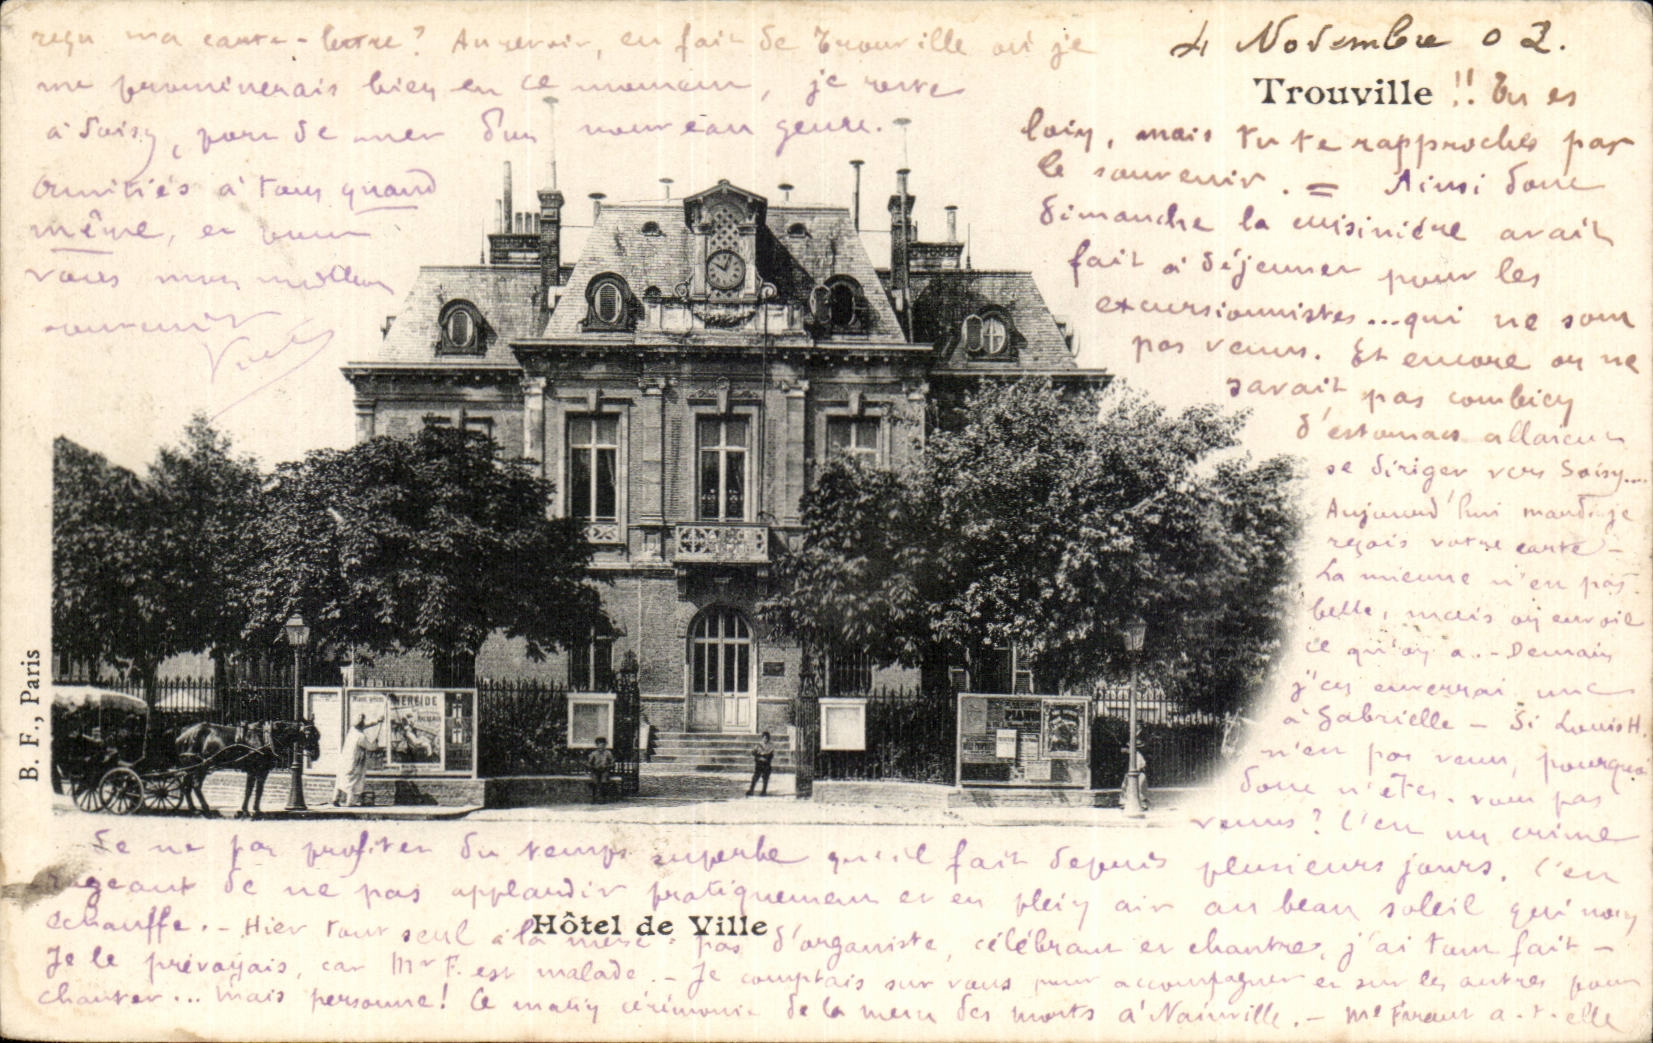 4 Novembre 02.
Trouville !! Tu es
loin, mais tu te rapproches par
le souvenir. = Ainsi donc
dimanche la cuisinière avait
fait à déjeuner pour les
excursionnistes...qui ne sont
pas venus. Et encore on ne
savait pas combien
d'estomacs allaient
se diriger vers Soisy...
Aujourd'hui mardi je
reçois votre carte -
La mienne n'est pas
belle, mais on envoie
ce qu'on a. - Demain
j'en enverrai une
à Gabrielle - Si Louis H.
n'est pas venu, pourquoi
donc n'êtes-vous pas
venus? C'est un crime
de ne pas profiter du temps superbe qu'il fait depuis plusieurs jours. C'est
rageant de ne pas applaudir pratiquement et en plein air au beau soleil qui nous
échauffe. - Hier tout seul à la messe: pas d'organiste, célébrant et chantre, j'ai tout fait -
Je le prévoyais, car Mr F. est malade. - Je comptais sur vous pour accompagner et sur les autres pour
chanter... mais personne! Ce matin cérémonie de la messe des morts à Nainville. - Me a-t-elle
reçu ma carte-lettre? Au revoir, en fait de Trouville où je
me promènerais bien en ce moment, je reste
à Soisy, port de mer d'un nouveau genre.
Amitiés à tous quand
même, et pour
vous mon meilleur
souvenir
Hôtel de Ville
B. F., Paris
NEREIDE
PIANO